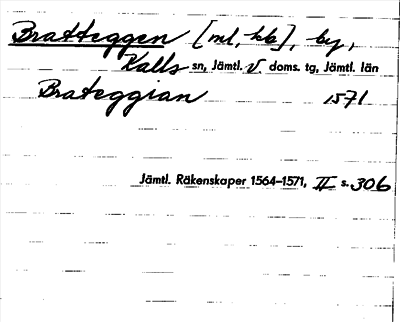 Bratteggen [ml, hb], by,
Kalls sn, Jämtl. v. doms. tg, Jämtl. län
Brateggian 1571
Jämtl. Räkenskaper 1564–1571, II s. 306